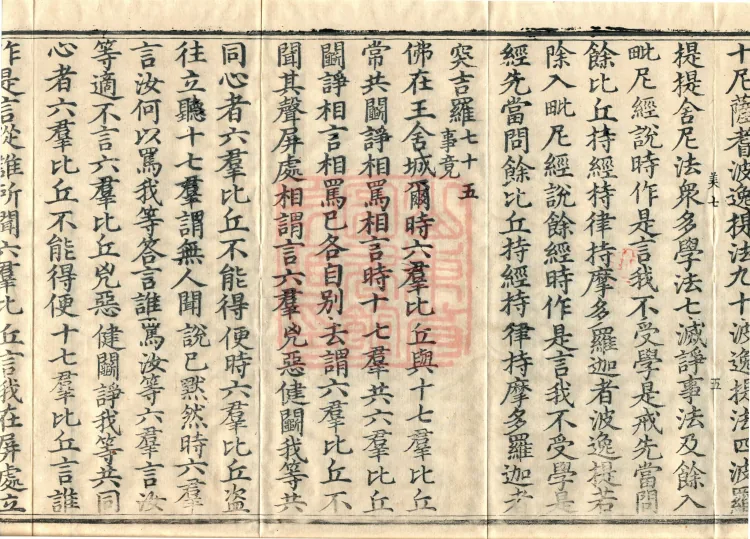 十尼薩耆波逸提法九十波逸提法四波羅
提提舍尼法衆多學法七滅諍事法及餘入
美七
五
毗尼經說時作是言我不受學是戒先當問
餘比丘持經持律持摩多羅迦者波逸提若
除入毗尼經說餘經時作是言我不受學是
經先當問餘比丘持經持律持摩多羅迦者
突吉羅七十五
事竟
佛在王舍城爾時六羣比丘與十七羣比丘
常共鬬諍相罵相言時十七羣共六羣比丘
鬬諍相言相罵已各自別去謂六羣比丘不
聞其聲屏處相謂言六羣兇惡健鬬我等共
同心者六羣比丘不能得便時六羣比丘盜
往立聽十七羣謂無人聞說已默然時六羣
言汝何以罵我等答言誰罵汝等六羣言汝
等適不言六羣比丘兇惡健鬬諍我等共同
心者六羣比丘不能得便十七羣比丘言誰
作是言從誰所聞六羣比丘言我在屏處立